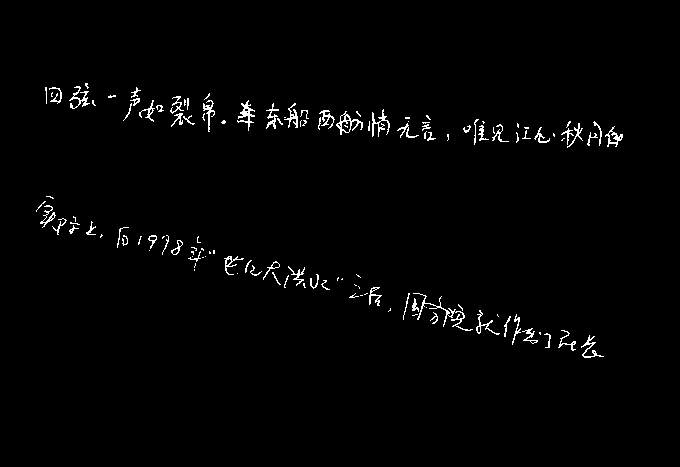 四弦一声如裂帛。东船西舫悄无言，唯见江心秋月白
实际上，后1998年“世纪大洪水”之后，国务院就作出了